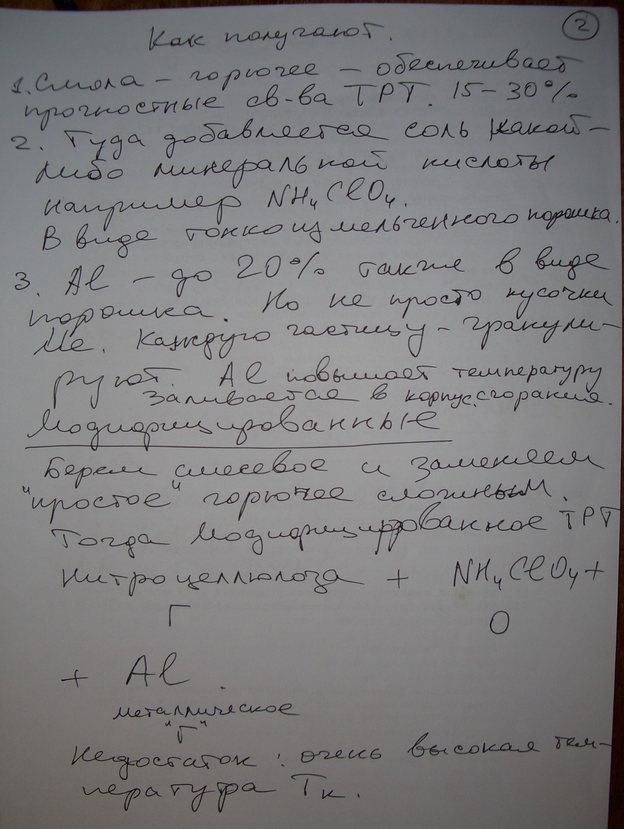 2
Как получают.
1. Смола – горючее – обеспечивает
прочностные св-ва ТРТ. 15–30%
2. Туда добавляется соль какой-
либо минеральной кислоты
например NH4ClO4.
В виде тонкоизмельченного порошка.
3. Al – до 20% также в виде
порошка. Но не просто кусочки
Ме. Каждую частицу – гранули-
руют. Al повышает температуру
Заливается в корпус. сгорания.
Модифицированные
Берем смесевое и заменяем
"простое" горючее сложным.
Тогда Модифицированное ТРТ
Нитроцеллюлоза + NH4ClO4 +
Г О
+ Al.
металлическое
"Г"
Недостаток: очень высокая тем-
пература Тк.